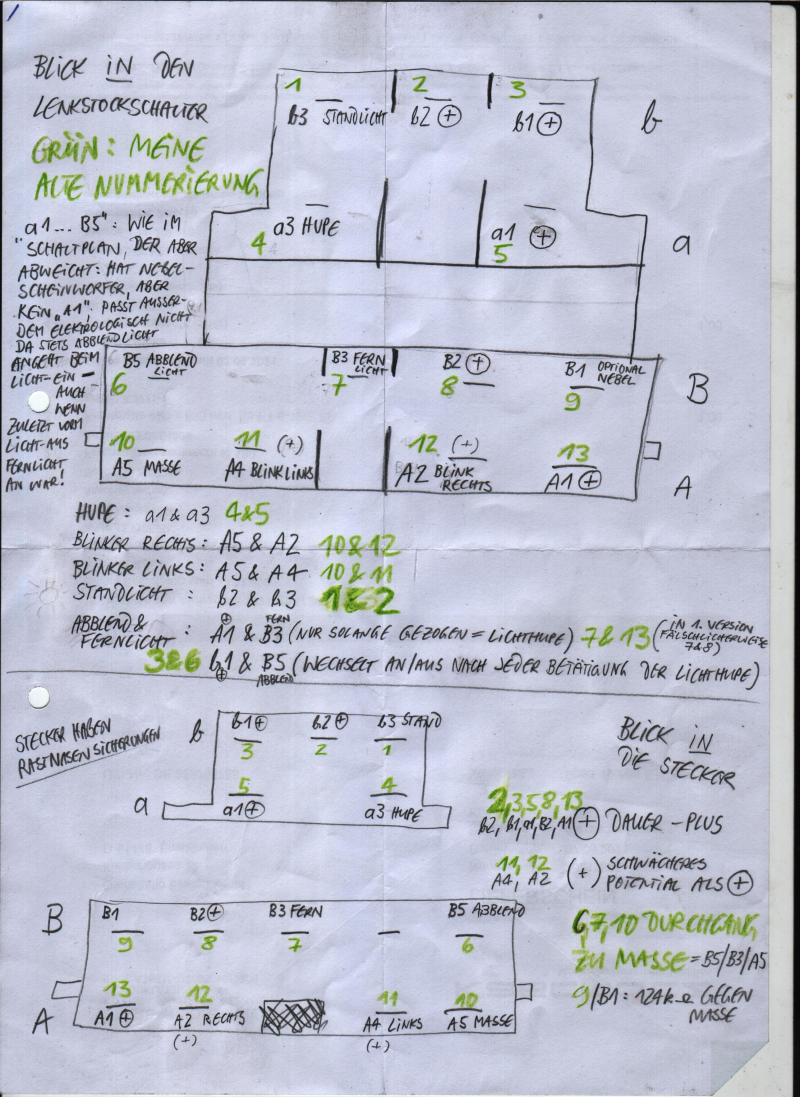 BLICK IN DEN
LENKSTOCKSCHALTER
GRÜN: MEINE
ALTE NUMMERIERUNG
1 2 3
b3 STANDLICHT b2 ⊕ b1 ⊕ b
a3 HUPE a1 ⊕ a
4 5
"a1... B5": WIE IM
SCHALTPLAN, DER ABER
ABWEICHT: HAT NEBEL-
SCHEINWERFER, ABER
KEIN "A1". PASST AUSSER-
DEM ELEKTROLOGISCH NICHT
DA STETS ABBLENDLICHT
ANGEHT BEIM
LICHT-EIN-
AUCH
WENN
ZULETZT VORM
LICHT-AUS
FERNLICHT
AN WAR!
B5 ABBLEND LICHT B3 FERN LICHT B2 ⊕ B1 OPTIONAL NEBEL B
6 7 8 9
10 11 (+) 12 (+) 13
A5 MASSE A4 BLINK LINKS A2 BLINK RECHTS A1 ⊕ A
HUPE: a1 & a3 4&5
BLINKER RECHTS: A5 & A2 10&12
BLINKER LINKS: A5 & A4 10&11
STANDLICHT : b2 & b3 1&2
ABBLEND &
FERNLICHT : A1 ⊕ & B3 FERN (NUR SOLANGE GEZOGEN = LICHTHUPE) 7&13 (IN 1. VERSION FÄLSCHLICHERWEISE 7&8)
3&6 b1 ⊕ & B5 ABBLEND (WECHSELT AN/AUS NACH JEDER BETÄTIGUNG DER LICHTHUPE)
STECKER HABEN
RASTNASENSICHERUNGEN
b b1 ⊕ b2 ⊕ b3 STAND
3 2 1
5 4
a a1 ⊕ a3 HUPE
BLICK IN
DIE STECKER
2,3,5,8,13
b2, b1, a1, B2, A1 ⊕ DAUER-PLUS
11, 12
A4, A2 (+) SCHWÄCHERES
POTENTIAL ALS ⊕
6,7,10 DURCHGANG
ZU MASSE = B5/B3/A5
9/B1: 124kΩ GEGEN
MASSE
B B1 B2 ⊕ B3 FERN B5 ABBLEND
9 8 7 6
13 12 11 10
A A1 ⊕ A2 RECHTS A4 LINKS A5 MASSE
(+) (+)